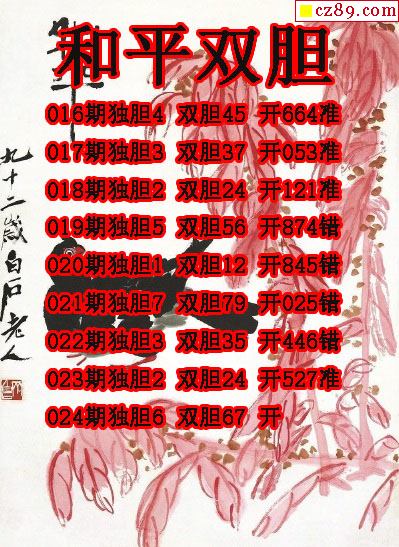 cz89.com
和平双胆
016期独胆4 双胆45 开664准
017期独胆3 双胆37 开053准
018期独胆2 双胆24 开121准
019期独胆5 双胆56 开874错
020期独胆1 双胆12 开845错
021期独胆7 双胆79 开025错
022期独胆3 双胆35 开446错
023期独胆2 双胆24 开527准
024期独胆6 双胆67 开
九十二岁白石老人